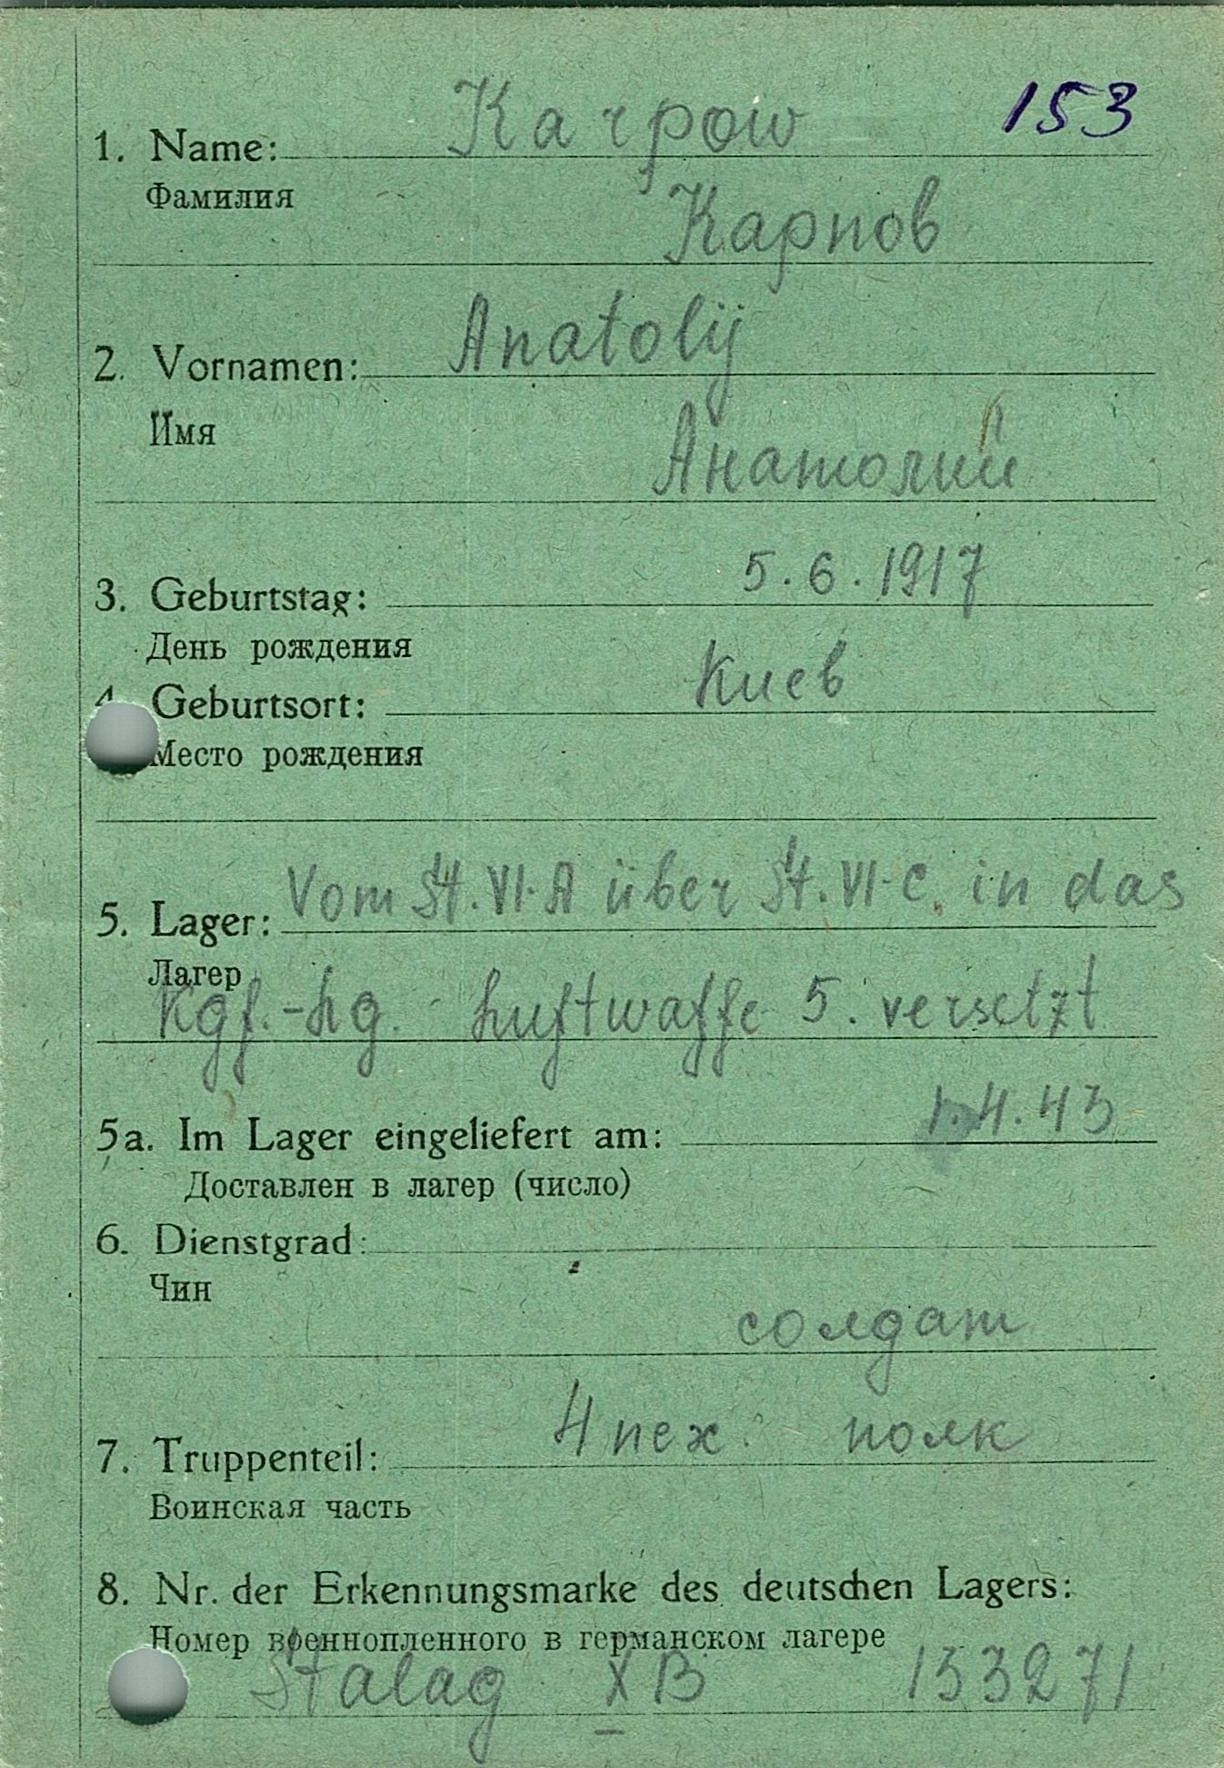 153
1. Name: Karpow
Фамилия
Карпов
2. Vornamen: Anatolij
Имя
Анатолий
3. Geburtstag: 5.6.1917
День рождения
4. Geburtsort: Киев
Место рождения
5. Lager: Vom St. VI-A über St. VI-C. in das
Лагер
Kgf.-Lg. Luftwaffe 5. versetzt
5a. Im Lager eingeliefert am: 1.4.43
Доставлен в лагер (число)
6. Dienstgrad:
Чин
солдат
7. Truppenteil: 4 пех. полк
Воинская часть
8. Nr. der Erkennungsmarke des deutschen Lagers:
Номер врeннопленного в германском лагере
Stalag XB 133271